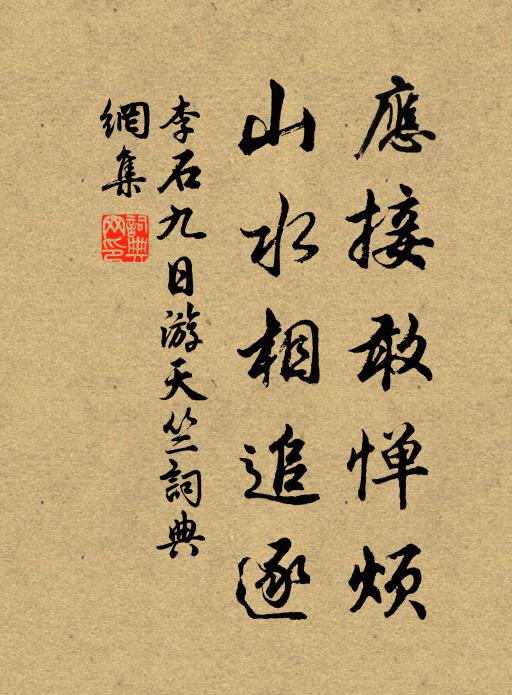 應接敢惮烦
山水相追逐
李石九日游天竺詞典
網集
詞典
网印